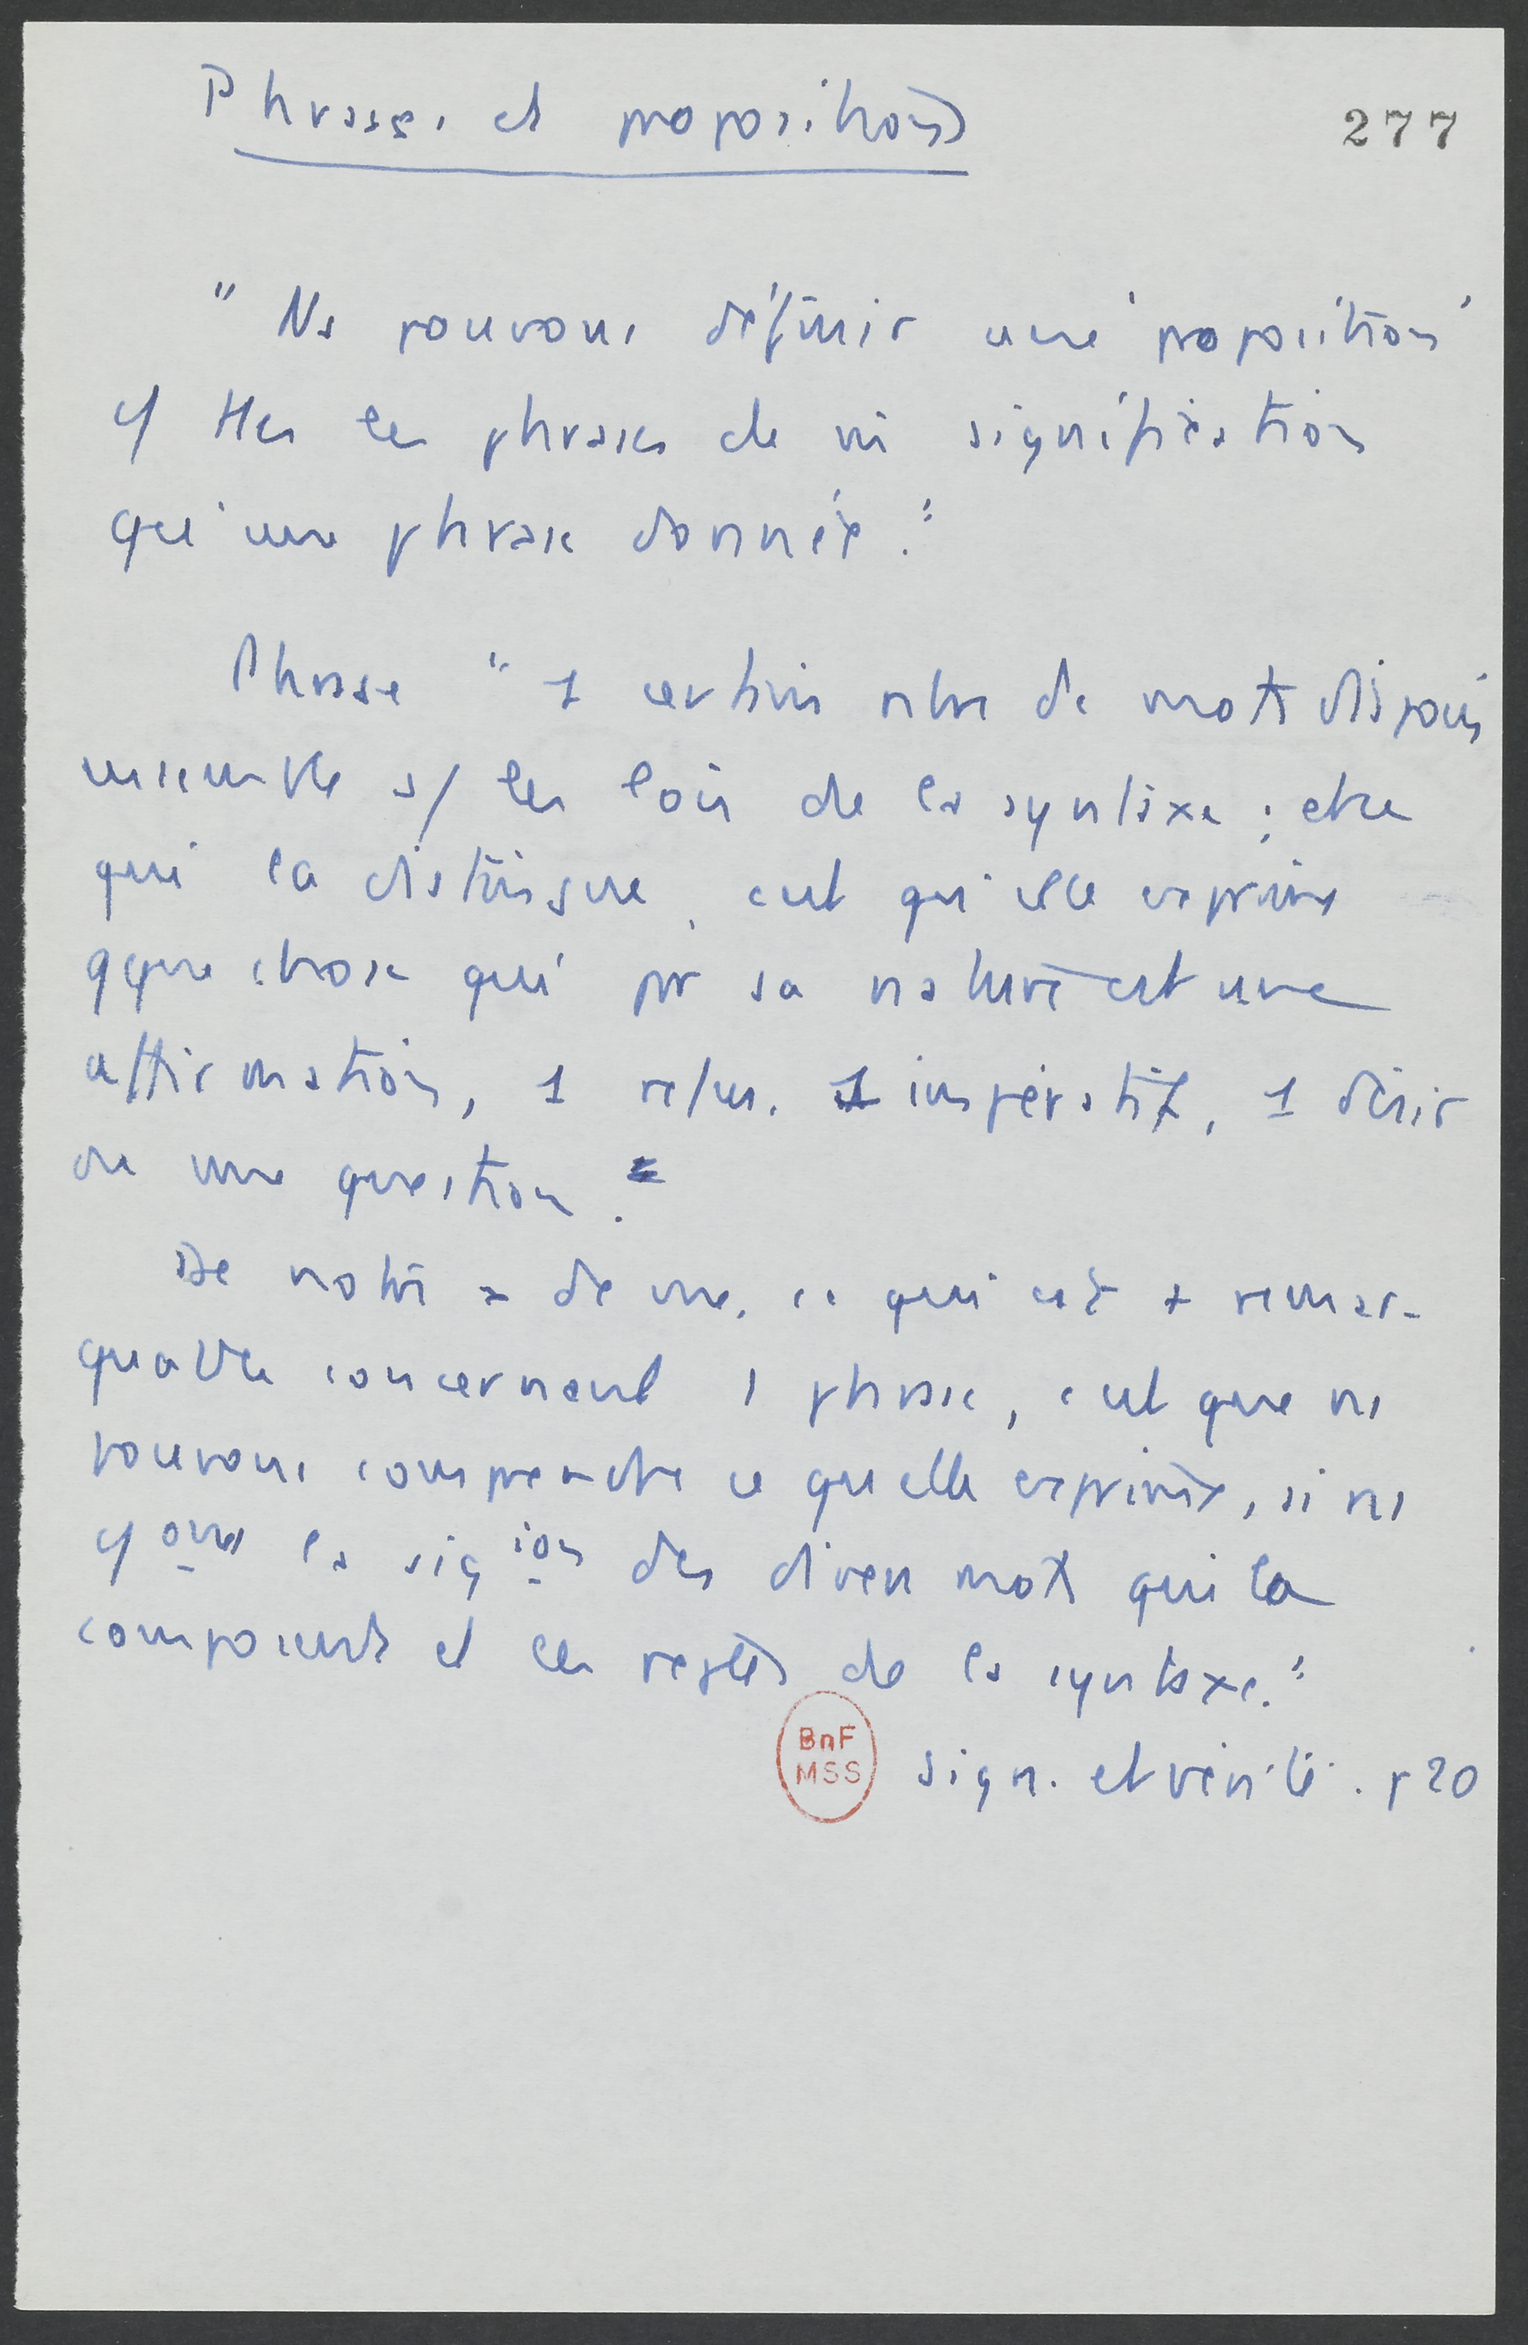 Phrases et propositions
277
" Ns pouvons définir une 'proposition'
c/ ttes les phrases de m̂ signification
qu'une phrase donnée."
Phrase " 1 certain nbre de mots disposés
ensemble s/ les lois de la syntaxe ; et ce
qui la distingue, c'est qu'elle exprime
qque chose qui pr sa nature est une
affirmation, 1 refus, 1 impératif, 1 désir
ou une question."
De notre . de vue, ce qui est + remar-
quable concernant 1 phrase, c'est que ns
pouvons comprendre ce qu'elle exprime, si ns
c/ons la sigion des divers mots qui la
composent et les règles de la syntaxe."
BnF
MSS
Sign. et vérité. p 20